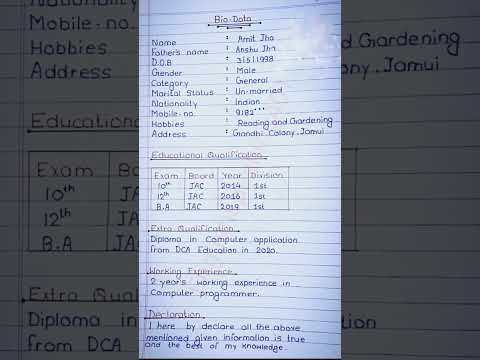 Bio-Data
Name : Amit Jha
Father's name : Anshu Jha
D.O.B : 31511998
Gender : Male
Category : General
Marital Status : Un-married
Nationality : Indian
Mobile-no. : 9182***
Hobbies : Reading and Gardening
Address : Gandhi Colony, Jamui
Educational Qualification
Exam Board Year Division
10th JAC 2014 1st
12th JAC 2016 1st
B.A JAC 2019 1st
Extra Qualification
Diploma in Computer application
from DCA Education in 2020.
Working Experience
2 year's working experience in
Computer programmer.
Declaration
I here by declare all the above
mentioned given information is true
and the best of my knowledge.
Mobile-no.
Hobbies
Address
Educational
Exam Bo
10th JA
12th JA
B.A JA
Extra Quali
Diploma in
from DCA
nd Gardening
olony, Jamui